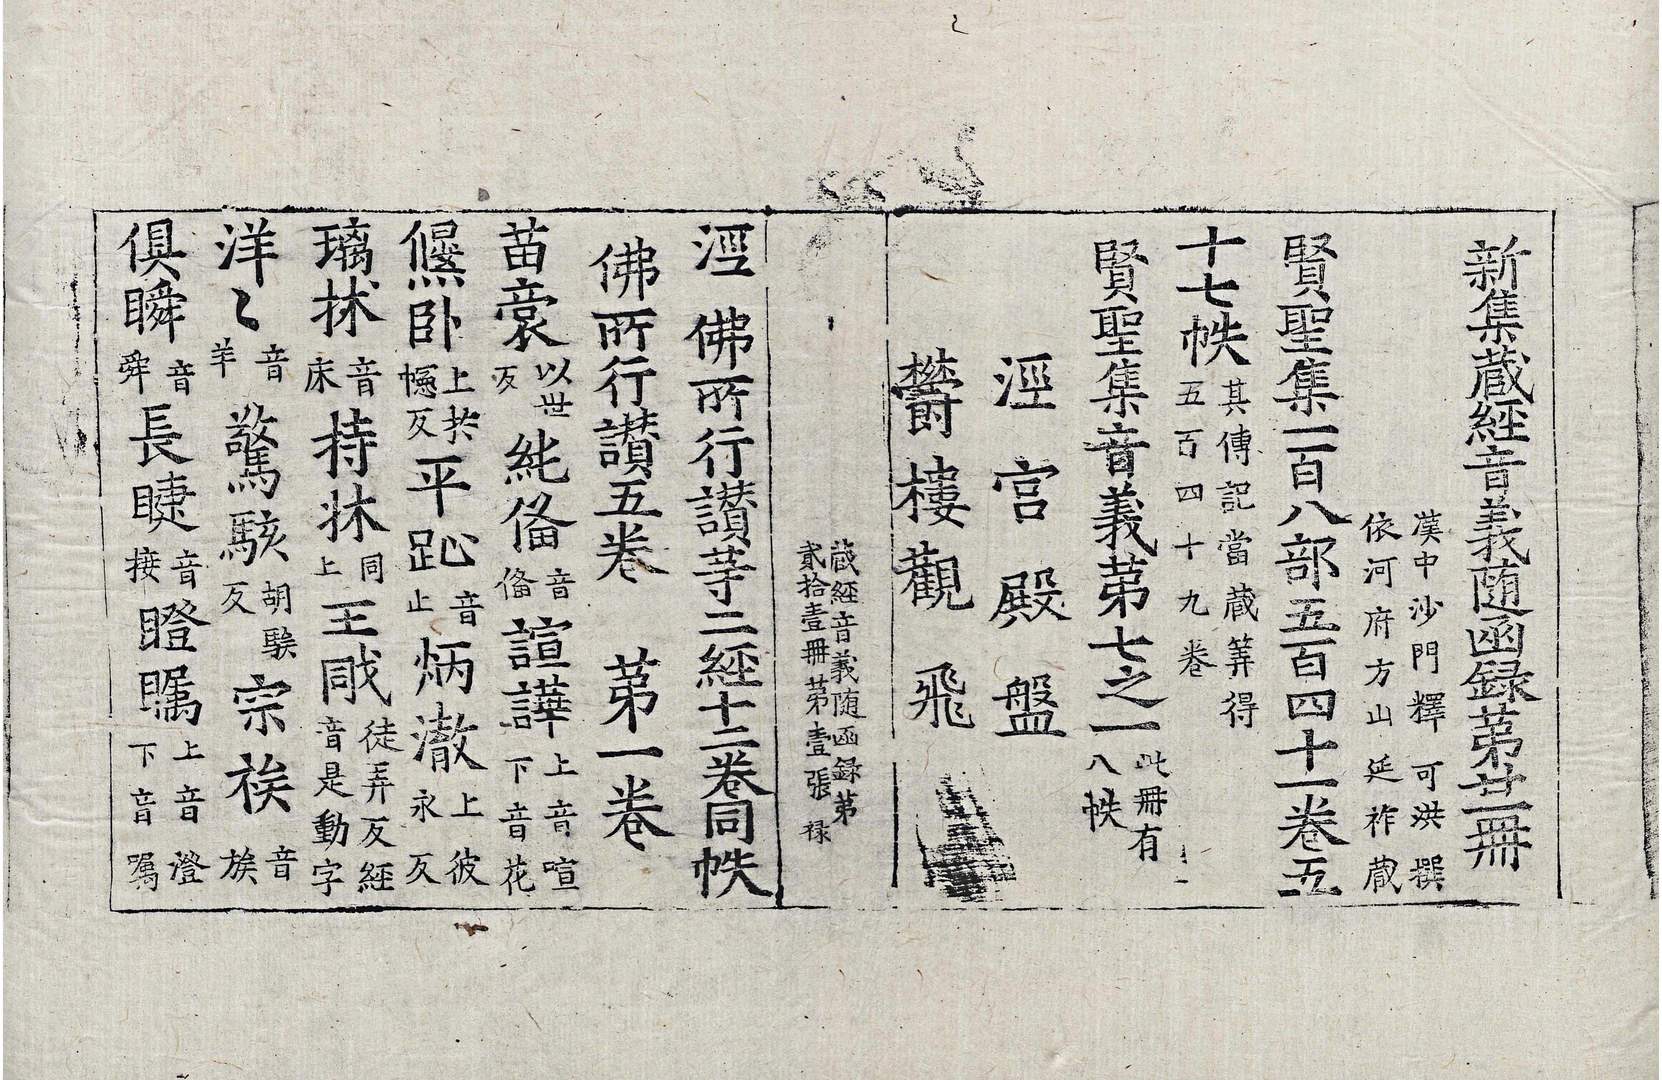 新集藏經音義随函録苐廿一冊
漢中沙門釋可洪撰
依河府方山延祚藏
賢聖集一百八部五百四十一卷五
十七帙其傳記當藏筭得
五百四十九卷
賢聖集音義苐七之一此冊有
八帙
涇宫殿盤
欝樓觀飛
藏經音義随函録苐
貳拾壹冊苐壹張禄
涇佛所行讃䓁二經十二卷同帙
佛所行讃五卷苐一卷
苗裔以世
反紕俻音
俻諠譁上音喧
下音花
偃卧上扵
幰反平趾音
止炳澈上彼
永反
璃牀音
床持牀同
上王戙徒弄反經
音是動字
洋〻音
羊驚駭胡騃
反宗族音
族
俱瞬音
舜長睫音
接瞪矚上音澄
下音囑